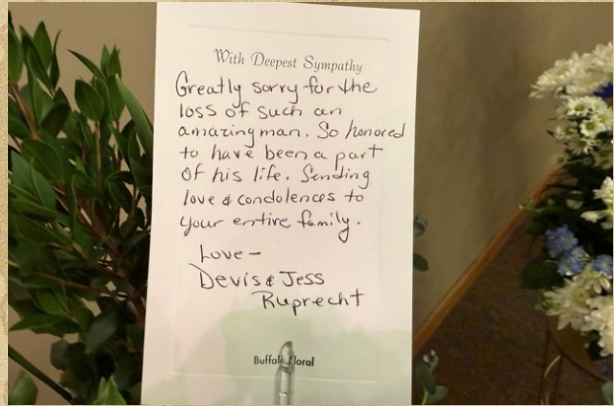 With Deepest Sympathy
Greatly sorry for the
loss of such an
amazing man. So honored
to have been a part
of his life. Sending
love & condolences to
your entire family.
Love –
Devis & Jess
Ruprecht
Buffalo Floral